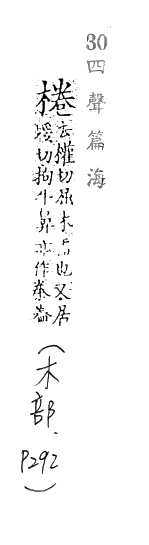 30 四聲篇海
棬去權切屈木盂也又居
援切拘牛鼻亦作桊
(木部.P292)